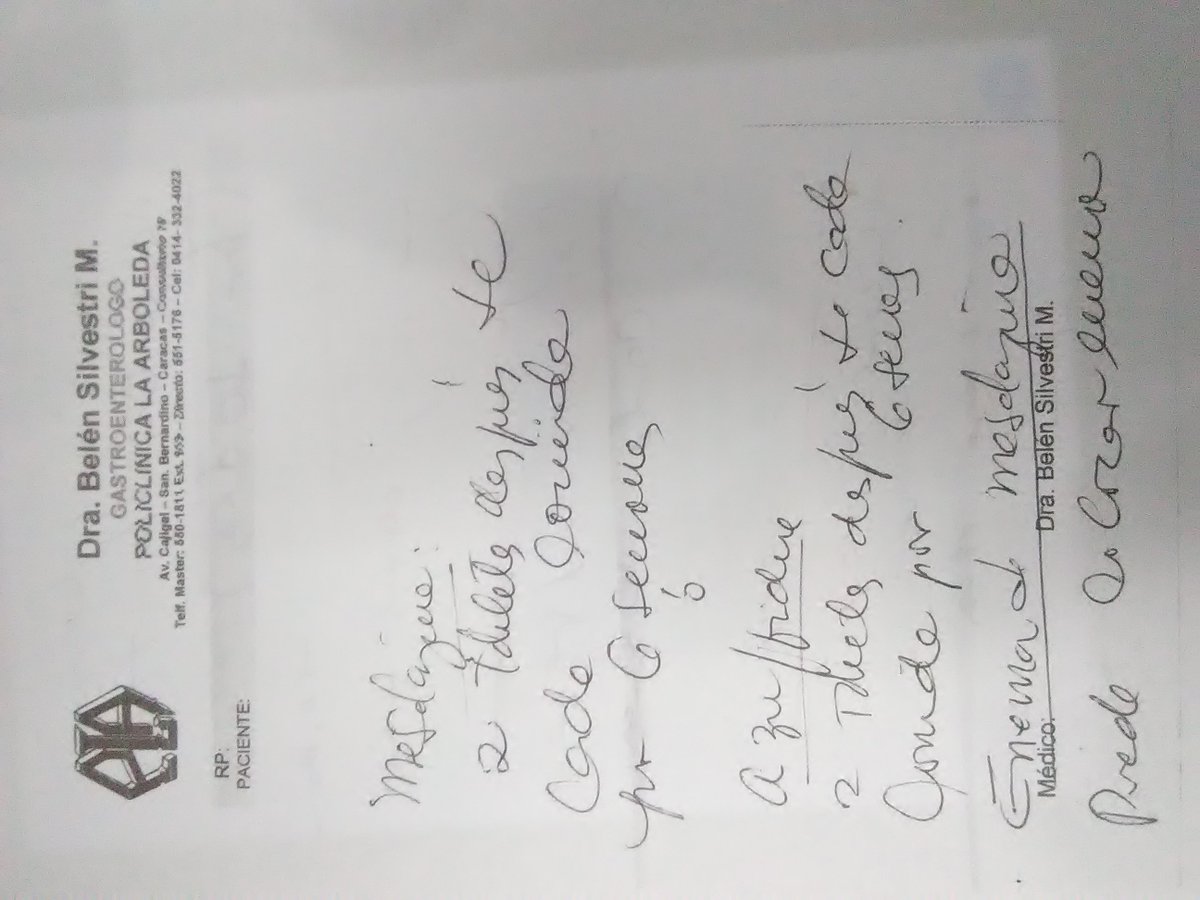 Dra. Belén Silvestri M.
GASTROENTEROLOGO
POLICLÍNICA LA ARBOLEDA
Av. Cajigal – San. Bernardino – Caracas – Consultorio 79
Telf. Master: 550-1811 Ext. 959 – Directo: 551-5176 – Cel: 0414- 332-4022
RP:
PACIENTE:
Mesalazina:
2 tableta después de
Cada comida
por 6 semanas
ó
azulfidine
2 tableta después de cada
comida por 6 semanas.
Enema de mesalazina
Médico:
Dra. Belén Silvestri M.